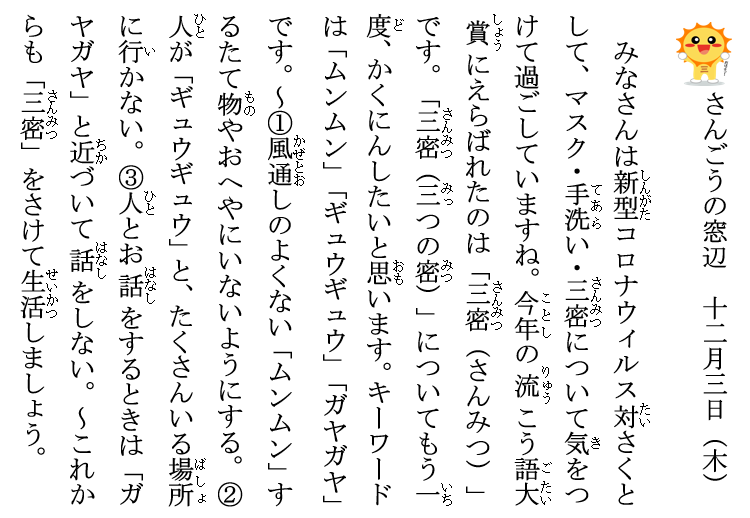 さんごうの窓辺　十二月三日（木）
みなさんは新型コロナウィルス対さくと
して、マスク・手洗い・三密について気をつ
けて過ごしていますね。今年の流こう語大
賞にえらばれたのは「三密（さんみつ）」
です。「三密（三つの密）」についてもう一
度、かくにんしたいと思います。キーワード
は「ムンムン」「ギュウギュウ」「ガヤガヤ」
です。～①風通しのよくない「ムンムン」す
るたて物やおへやにいないようにする。②
人が「ギュウギュウ」と、たくさんいる場所
に行かない。③人とお話をするときは「ガ
ヤガヤ」と近づいて話をしない。～これか
らも「三密」をさけて生活しましょう。